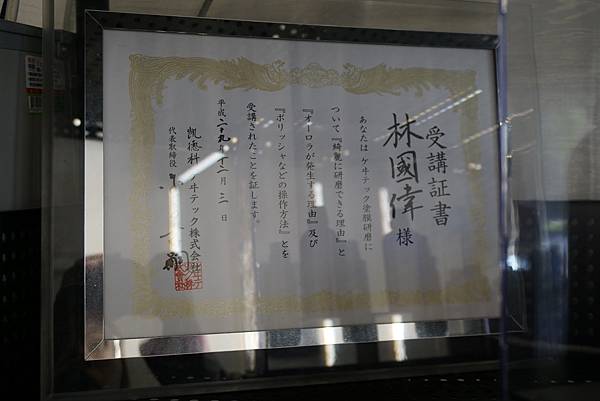 受講証書
林國偉様
あなたは ケヰテック塗膜研磨に
ついて『綺麗に研磨できる理由』と
『オーロラが発生する理由』及び
『ポリッシャなどの操作方法』とを
受講されたことを証します。
平成二十九年十一月三日
凱德科ケヰテック株式会社
代表取締役